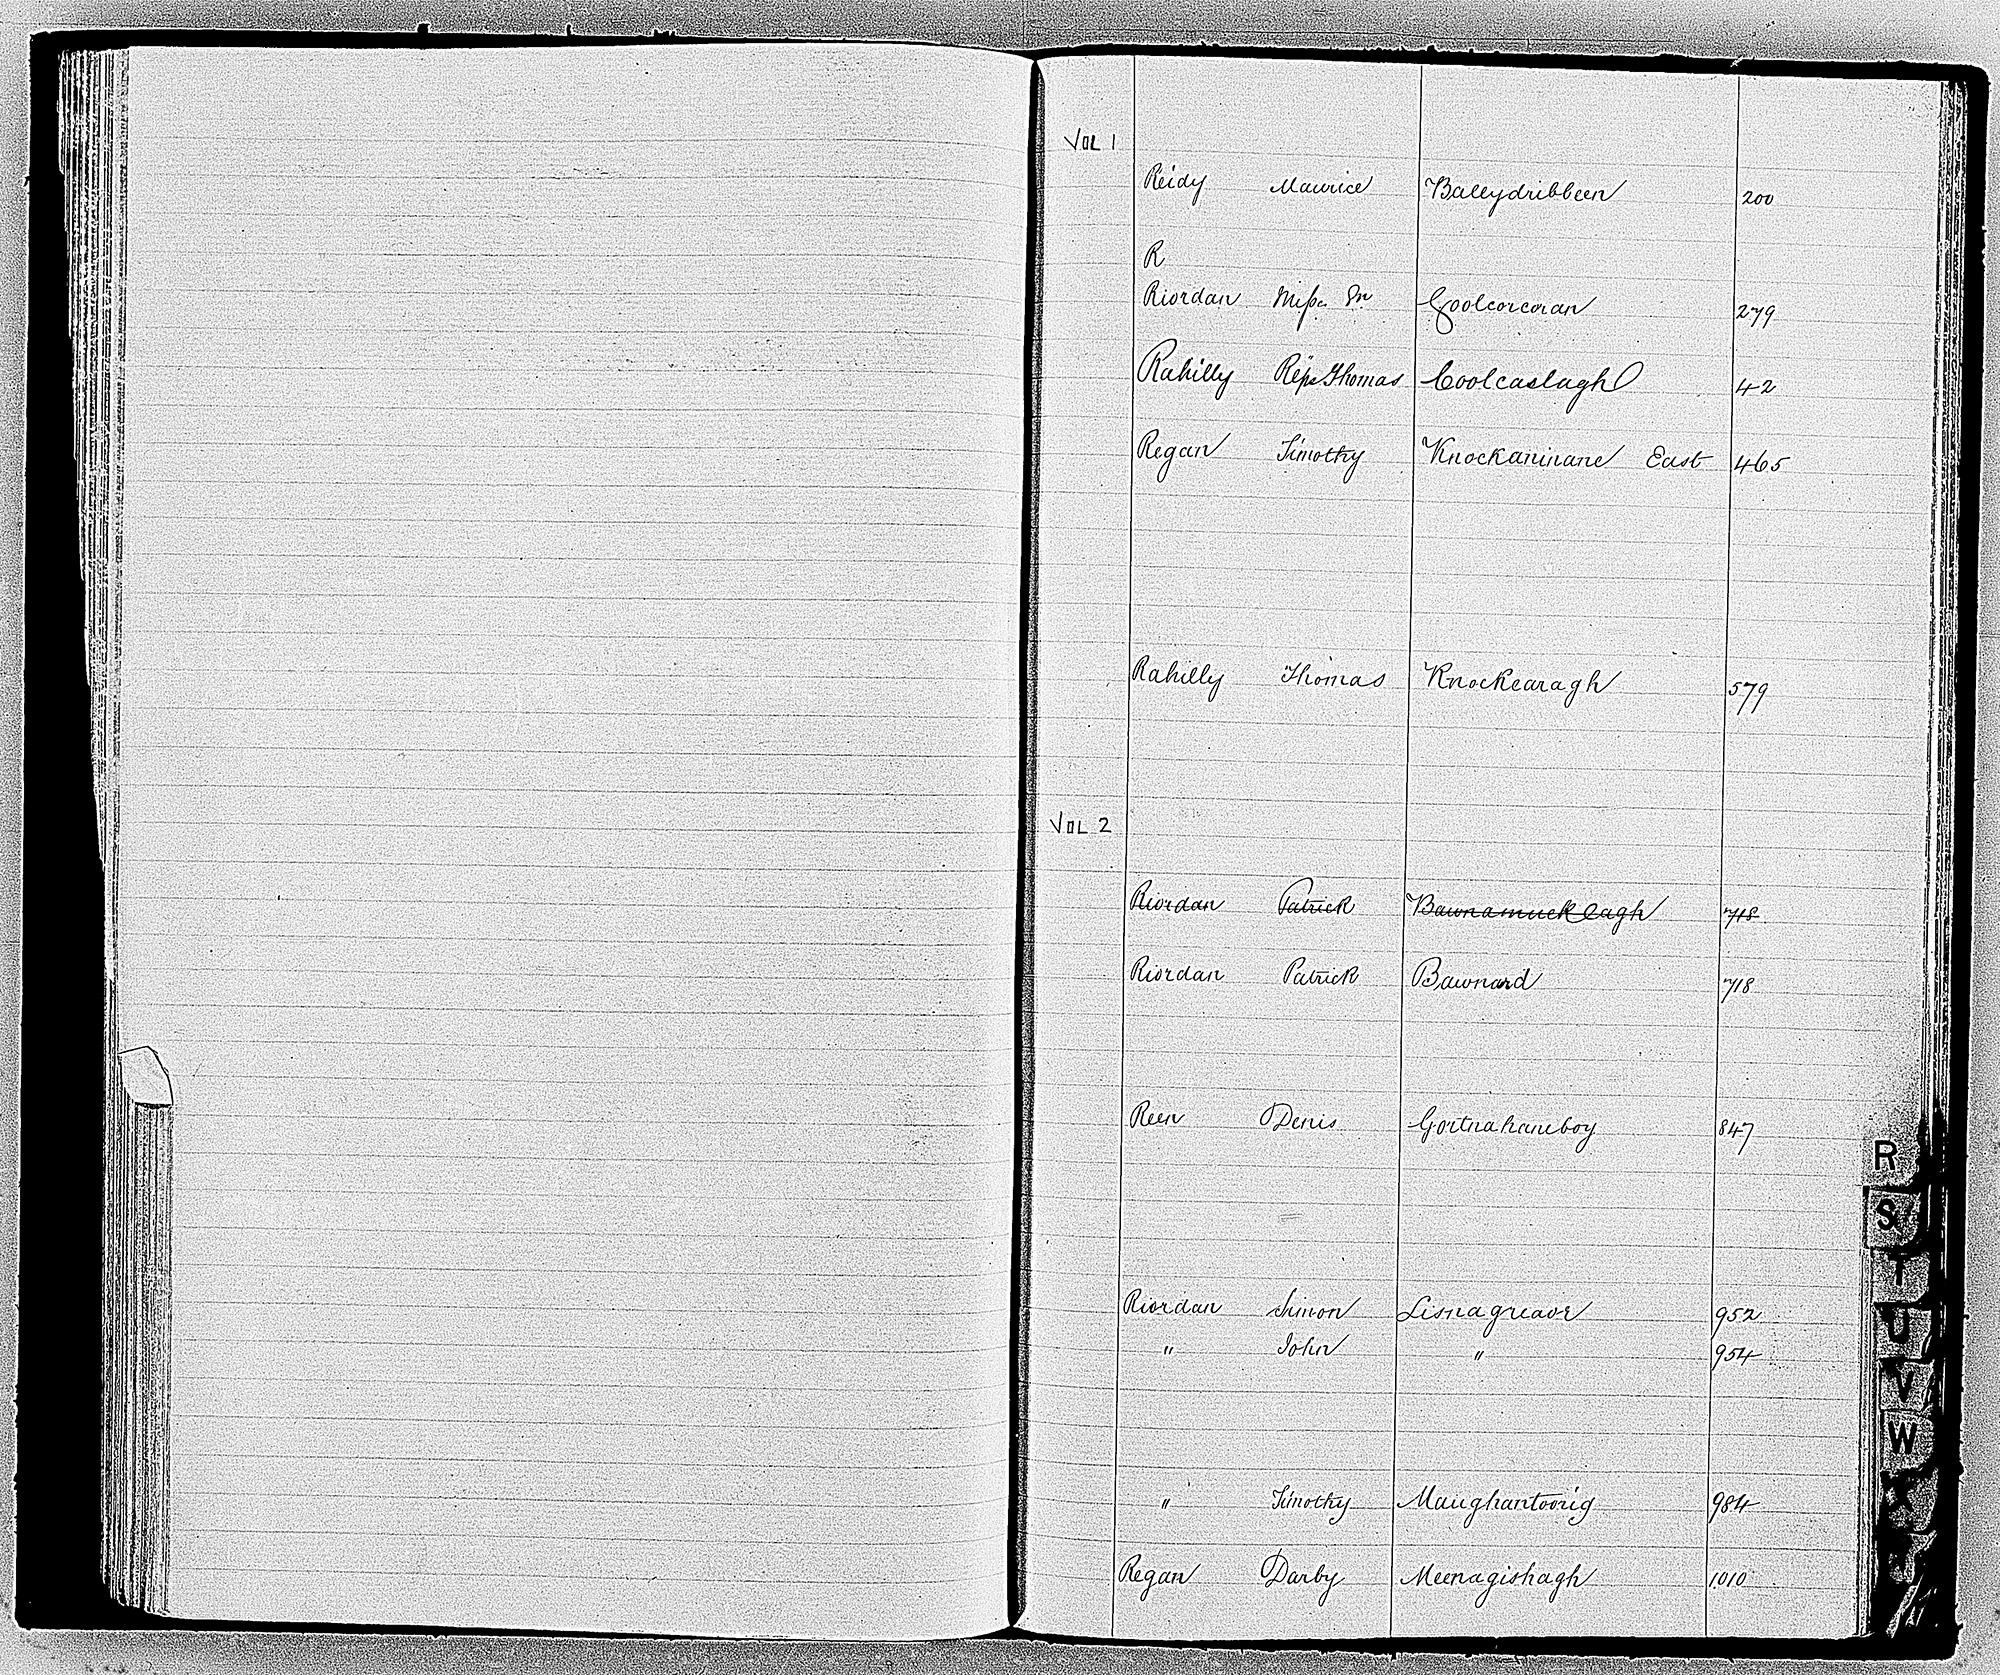 VOL 1
Reidy Maurice Balleydribbeen 200
R
Riordan Miss M Coolcorcoran 279
Rahilly Reps Thomas Coolcaslagh 42
Regan Timothy Knockaninane East 465
Rahilly Thomas Knockearagh 579
VOL 2
Riordan Patrick Bawnamuck Eagh 718
Riordan Patrick Bawnard 718
Reen Denis Gortnahaneboy 847
Riordan Simon Lisnagreave 952
" John " 954
" Timothy Maughantoorig 984
Regan Darby Meenagishagh 1010
R
S
T
U
V
W
X